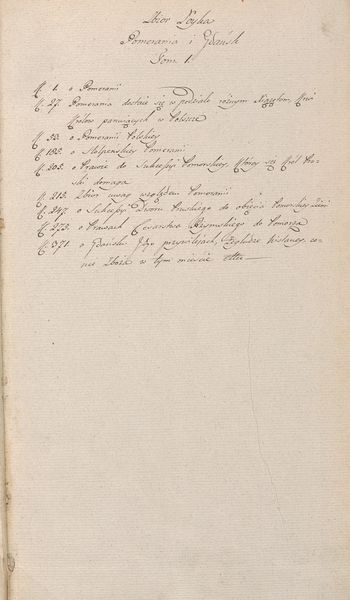 Zbior Łoyka
Pomerania i Gdańsk
Tom 1.
K. 1. o Pomeranii
K. 27. Pomerania dostaie się w podziale roznym Xiążętom, Kró
Krolow panuiących w Polszcze
K. 93. o Pomeranii Polskiey
K. 183. o Stolpenskiey Pomeranii
K. 203. o Prawie do Sukcessyi Pomorskiey, ktorey się Krol Pru-
ski domaga
K. 213. Zbior uwag względem Pomeranii
K. 247. o Sukcessyi Dworu Pruskiego do obięcia Pomorskiey Ziemi
K. 273. o Prawach Cesarstwa Rzymskiego do Pomorza
K. 371. o Gdańsku Jego przywileiach, Żegludze Wiślaney, ce-
nie Zboża w tym mieście etc